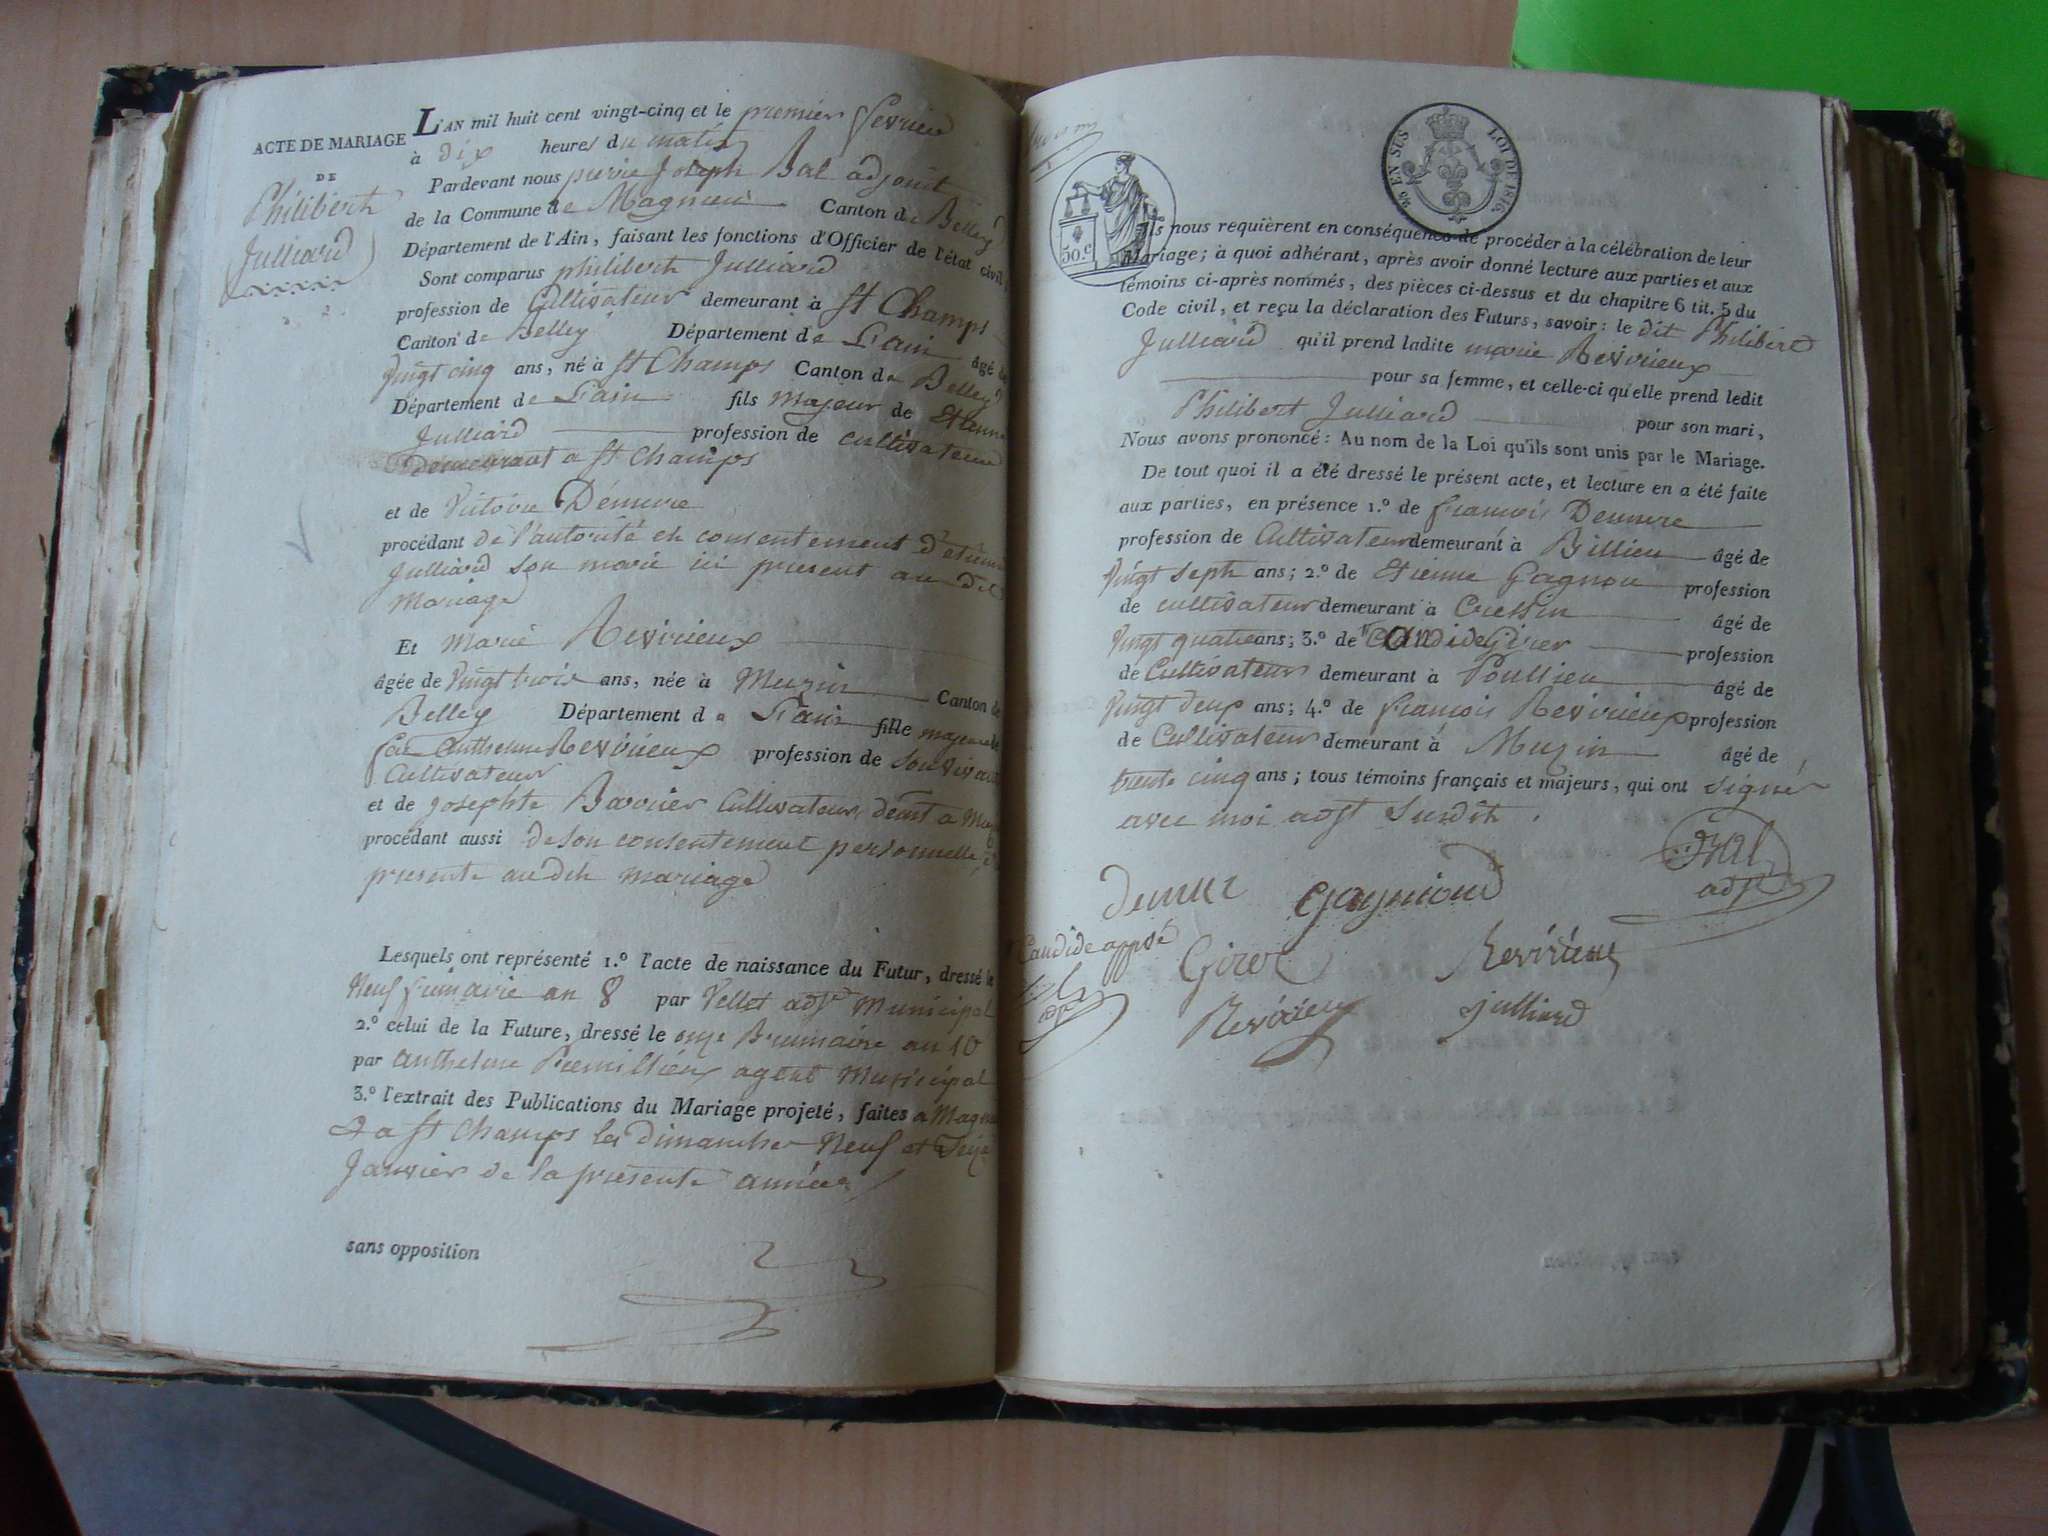 ACTE DE MARIAGE
DE
Philibert
Julliard
L'AN mil huit cent vingt-cinq et le premier fevrier
à dix heures du matin
Pardevant nous pierre Joseph Bal adjoint
de la Commune de Magnieu Canton de Belley
Département de l'Ain, faisant les fonctions d'Officier de l'état civil,
Sont comparus philibert Julliard
profession de Cultivateur demeurant à St Champs
Canton de Belley Département de L'ain âgé de
Vingt cinq ans, né à St Champs Canton de Belley
Département de L'ain fils majeur de Etienne
Julliard profession de cultivateur
Demeurant a St Champs
et de Victoire Démure
procédant de l'autorité et consentement d'etienne
Julliard son marie ici present au dit
Mariage
Et Marie Revirieux
âgée de Vingt trois ans, née à Muzin Canton de
Belley Département de L'ain fille majeure de
feu Anthelme Revirieux profession de Son vivant
Cultivateur
et de Josephte Barrier Cultivateur, demt a Muzin
procédant aussi de son consentement personnelle,
presente au dit mariage
Lesquels ont représenté 1.º l'acte de naissance du Futur, dressé le
Neuf frimaire an 8 par Vellet adjt Municipal
2.º celui de la Future, dressé le onze Brumaire an 10
par anthelme Premillieux agent Municipal
3.º l'extrait des Publications du Mariage projeté, faites a Magnieu
& a St Champs les dimanches Neuf et Seize
Janvier de la presente année
sans opposition
EN SUS LOI DE 1816.
50.c
Ils nous requièrent en conséquence de procéder à la célébration de leur
Mariage; à quoi adhérant, après avoir donné lecture aux parties et aux
témoins ci-après nommés, des pièces ci-dessus et du chapitre 6 tit. 5 du
Code civil, et reçu la déclaration des Futurs, savoir: le dit Philibert
Julliard qu'il prend ladite marie Revirieux
pour sa femme, et celle-ci qu'elle prend ledit
Philibert Julliard pour son mari,
Nous avons prononcé: Au nom de la Loi qu'ils sont unis par le Mariage.
De tout quoi il a été dressé le présent acte, et lecture en a été faite
aux parties, en présence 1.º de francois Demure
profession de Cultivateur demeurant à Billieu âgé de
Vingt sept ans; 2.º de Etienne Gagnon profession
de cultivateur demeurant à Cressin âgé de
Vingt quatre ans; 3.º de Candide Girer profession
de Cultivateur demeurant à Poullieu âgé de
Vingt deux ans; 4.º de francois Revirieux profession
de Cultivateur demeurant à Muzin âgé de
trente cinq ans; tous témoins français et majeurs, qui ont signés
avec moi adjt Susdit.
Bal
adjt
Demure Gagniond
Candide appvé
Girer Revirieux
Bal
adjt
Revirieux Julliard